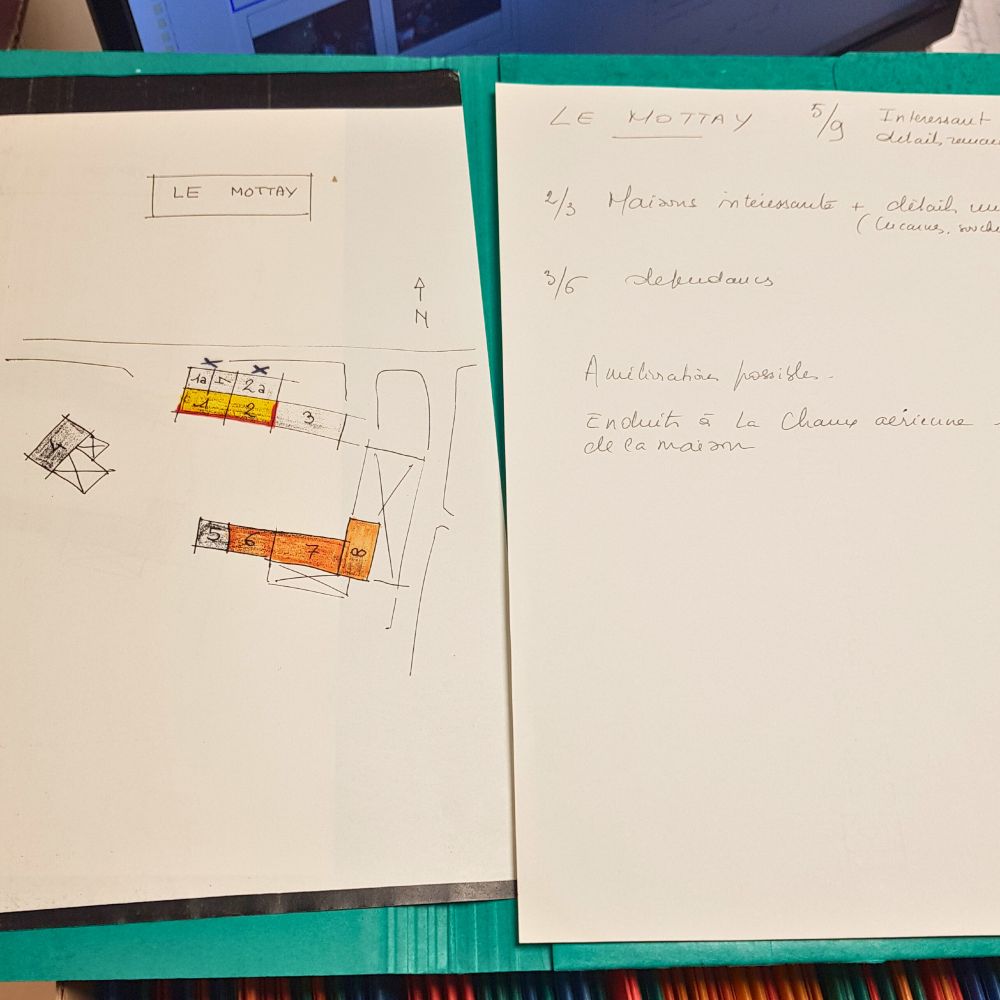 LE MOTTAY
N
1a
2a
1
2
3
4
5
6
7
8
LE MOTTAY 5/9 Interessant
détails
2/3 Maisons intéressante + détails
(Lucarnes,
3/6 dependances
Améliorations possibles.
Enduits à La Chaux aérienne
de la maison